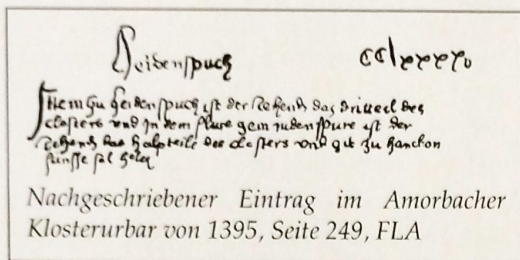 Heidenspuch cclxxxxv
Item zu heidenspuch ist der zehend das dritteil des
closters und in dem flure gein judenspure ist der
zehend das halpteile des closters und git zu hanckon
funffe sol heler
Nachgeschriebener Eintrag im Amorbacher
Klosterurbar von 1395, Seite 249, FLA